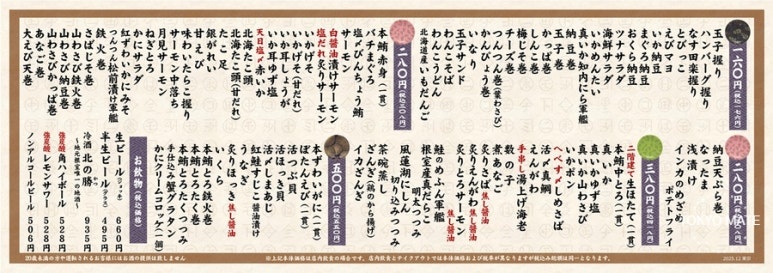 一六〇円(税込一七六円)
玉子握り
ハンバーグ握り
なす田楽握り
とびっこ
えびマヨ
いか納豆
まぐろ納豆
おくら納豆
ツナサラダ
海鮮サラダ
いかめんたい
真いか知内にら軍艦
納豆巻
玉子巻
かっぱ巻
しんこ巻
梅じそ巻
チーズ巻
つんつん巻(葉わさび)
かんぴょう巻
玉子サンド
いなり
わんこそば
わんこうどん
北海道産いもだんご
二八〇円(税込三〇八円)
本鮪赤身(一貫)
バチまぐろ
塩〆びんちょう鮪
サーモン
白醤油漬けサーモン
塩だれ炙りサーモン
いかげそ
いかげそ(甘だれ)
いか耳しょうが
いか耳ゆず塩
天日塩〆赤いか
北海たこ頭
北海たこ頭(甘だれ)
たこ足
銀がれい
甘えび
味わいたらこ握り
サーモン中落ち
月見サーモン
ねぎとろ
かにサラダ
紅ずわいかにみそ
つんつん松前漬け軍艦
鉄火巻
さばじそ巻
山わさび鉄火巻
山わさび納豆巻
山わさびかっぱ巻
あなご巻
大えび天巻
二八〇円(税込三〇八円)
納豆天ぷら巻
なったま
浅漬け
インカのめざめ
ポテトフライ
三八〇円(税込四一八円)
本鮪中とろ(一貫)
二階建て生ほたて(一貫)
真いか
真いかゆず塩
真いか山わさび
いかポン
へべすで〆しめさば
活〆真鯛
えんがわ
手串し湯上げ海老
数の子
煮あなご
炙りさば 焦し醤油
炙りえんがわ 焦し醤油
炙りとろサーモン 焦し醤油
鮭のめふん軍艦
根室産真だらこ
明太つつみ
風蓮湖 切り込みつつみ
茶碗蒸し
ざんぎ(鶏のから揚げ)
イカざんぎ
五〇〇円(税込五五〇円)
本ずわいがに(一貫)
ぼたんえび(一貫)
活つぶ貝
活ほっき貝
活〆しまあじ
紅鮭すじこ醤油漬け
うなぎ
炙りほっき 焦し醤油
いくら
本鮪とろ鉄火巻
本鮪とろたく巻
本鮪中とろつつみ
手仕込み蟹グラタン
かにクリームコロッケ(二個)
お飲物(税込価格)
生ビール(ジョッキ) 660円
半生ビール(グラス) 495円
冷酒 北の勝 935円
~地元根室唯一の地酒~
強炭酸 角ハイボール 528円
強炭酸 レモンサワー 528円
ノンアルコールビール 506円
20歳未満の方や運転されるお客様にはお酒の提供は致しません
※上記本体価格は店内飲食の場合です。店内飲食とテイクアウトでは本体価格および税率が異なりますが税込み総額は同一となります。
2023.12 東京